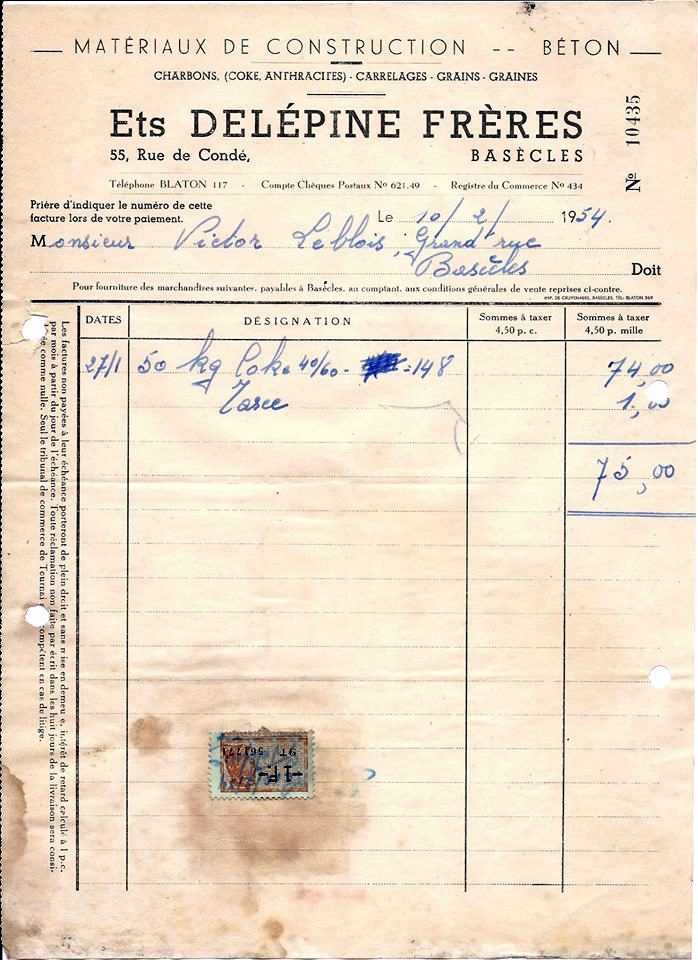 MATÉRIAUX DE CONSTRUCTION -- BÉTON
CHARBONS, (COKE, ANTHRACITES) - CARRELAGES - GRAINS - GRAINES
Ets DELÉPINE FRÈRES
55, Rue de Condé, BASÈCLES
No 10435
Téléphone BLATON 117 - Compte Chèques Postaux No 621.49 - Registre du Commerce No 434
Prière d'indiquer le numéro de cette
facture lors de votre paiement.
Le 10/2/ 1954.
Monsieur Victor Leblois, Grand'rue
Basècles Doit
Pour fourniture des marchandises suivantes, payables à Basècles, au comptant, aux conditions générales de vente reprises ci-contre.
IMP. DE CRUYENAERE, BASÈCLES. TÉL. BLATON 369
DATES DÉSIGNATION Sommes à taxer 4,50 p. c. Sommes à taxer 4,50 p. mille
27/1 50 kg Coke 40/60 - = 148 74,00
Taxe 1,00
75,00
Les factures non payées à leur échéance porteront de plein droit et sans mise en demeure, intérêt de retard calculé à 1 p.c.
par mois à partir du jour de l'échéance. Toute réclamation non faite par écrit dans les huit jours de la livraison sera consi-
comme nulle. Seul le tribunal de commerce de Tournai compétent en cas de litige.
-1F-
9T 561771